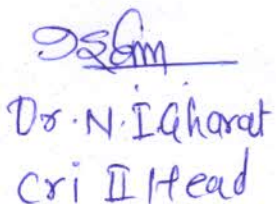 Dr. N. I Gharat
Cri II Head